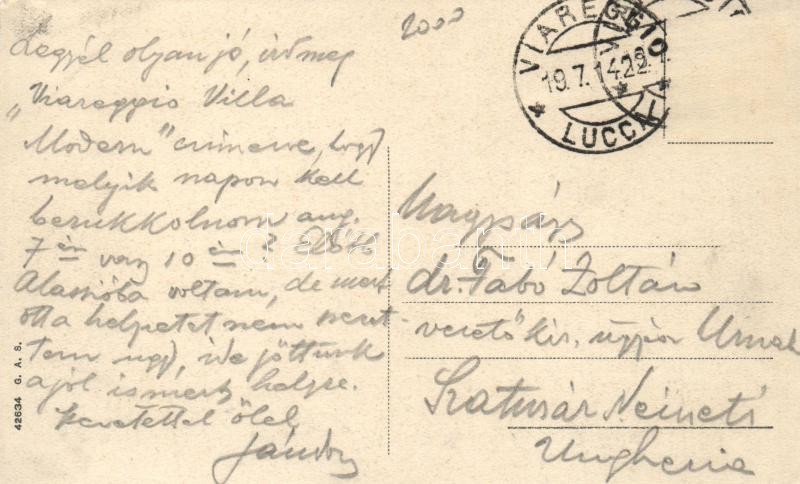 2000
VIAREGGIO
19.7.14.22
LUCCA
Legyél olyan jó, írd meg
„Viareggio Villa
Modern" címemre, hogy
melyik napon kell
berukkolnom aug.
7 én vagy 10 én?
Alassióba voltam, de mert
otta helyetet nem szeret-
tem úgy, ide jöttünk
a jól ismert helyre.
szeretettel ölel
Sándor
Nagyságos
dr. Fabó Zoltán
vezető kir. ügyész Úrnak
Szatmár Németi
Ungheria
42634 G. A. S.